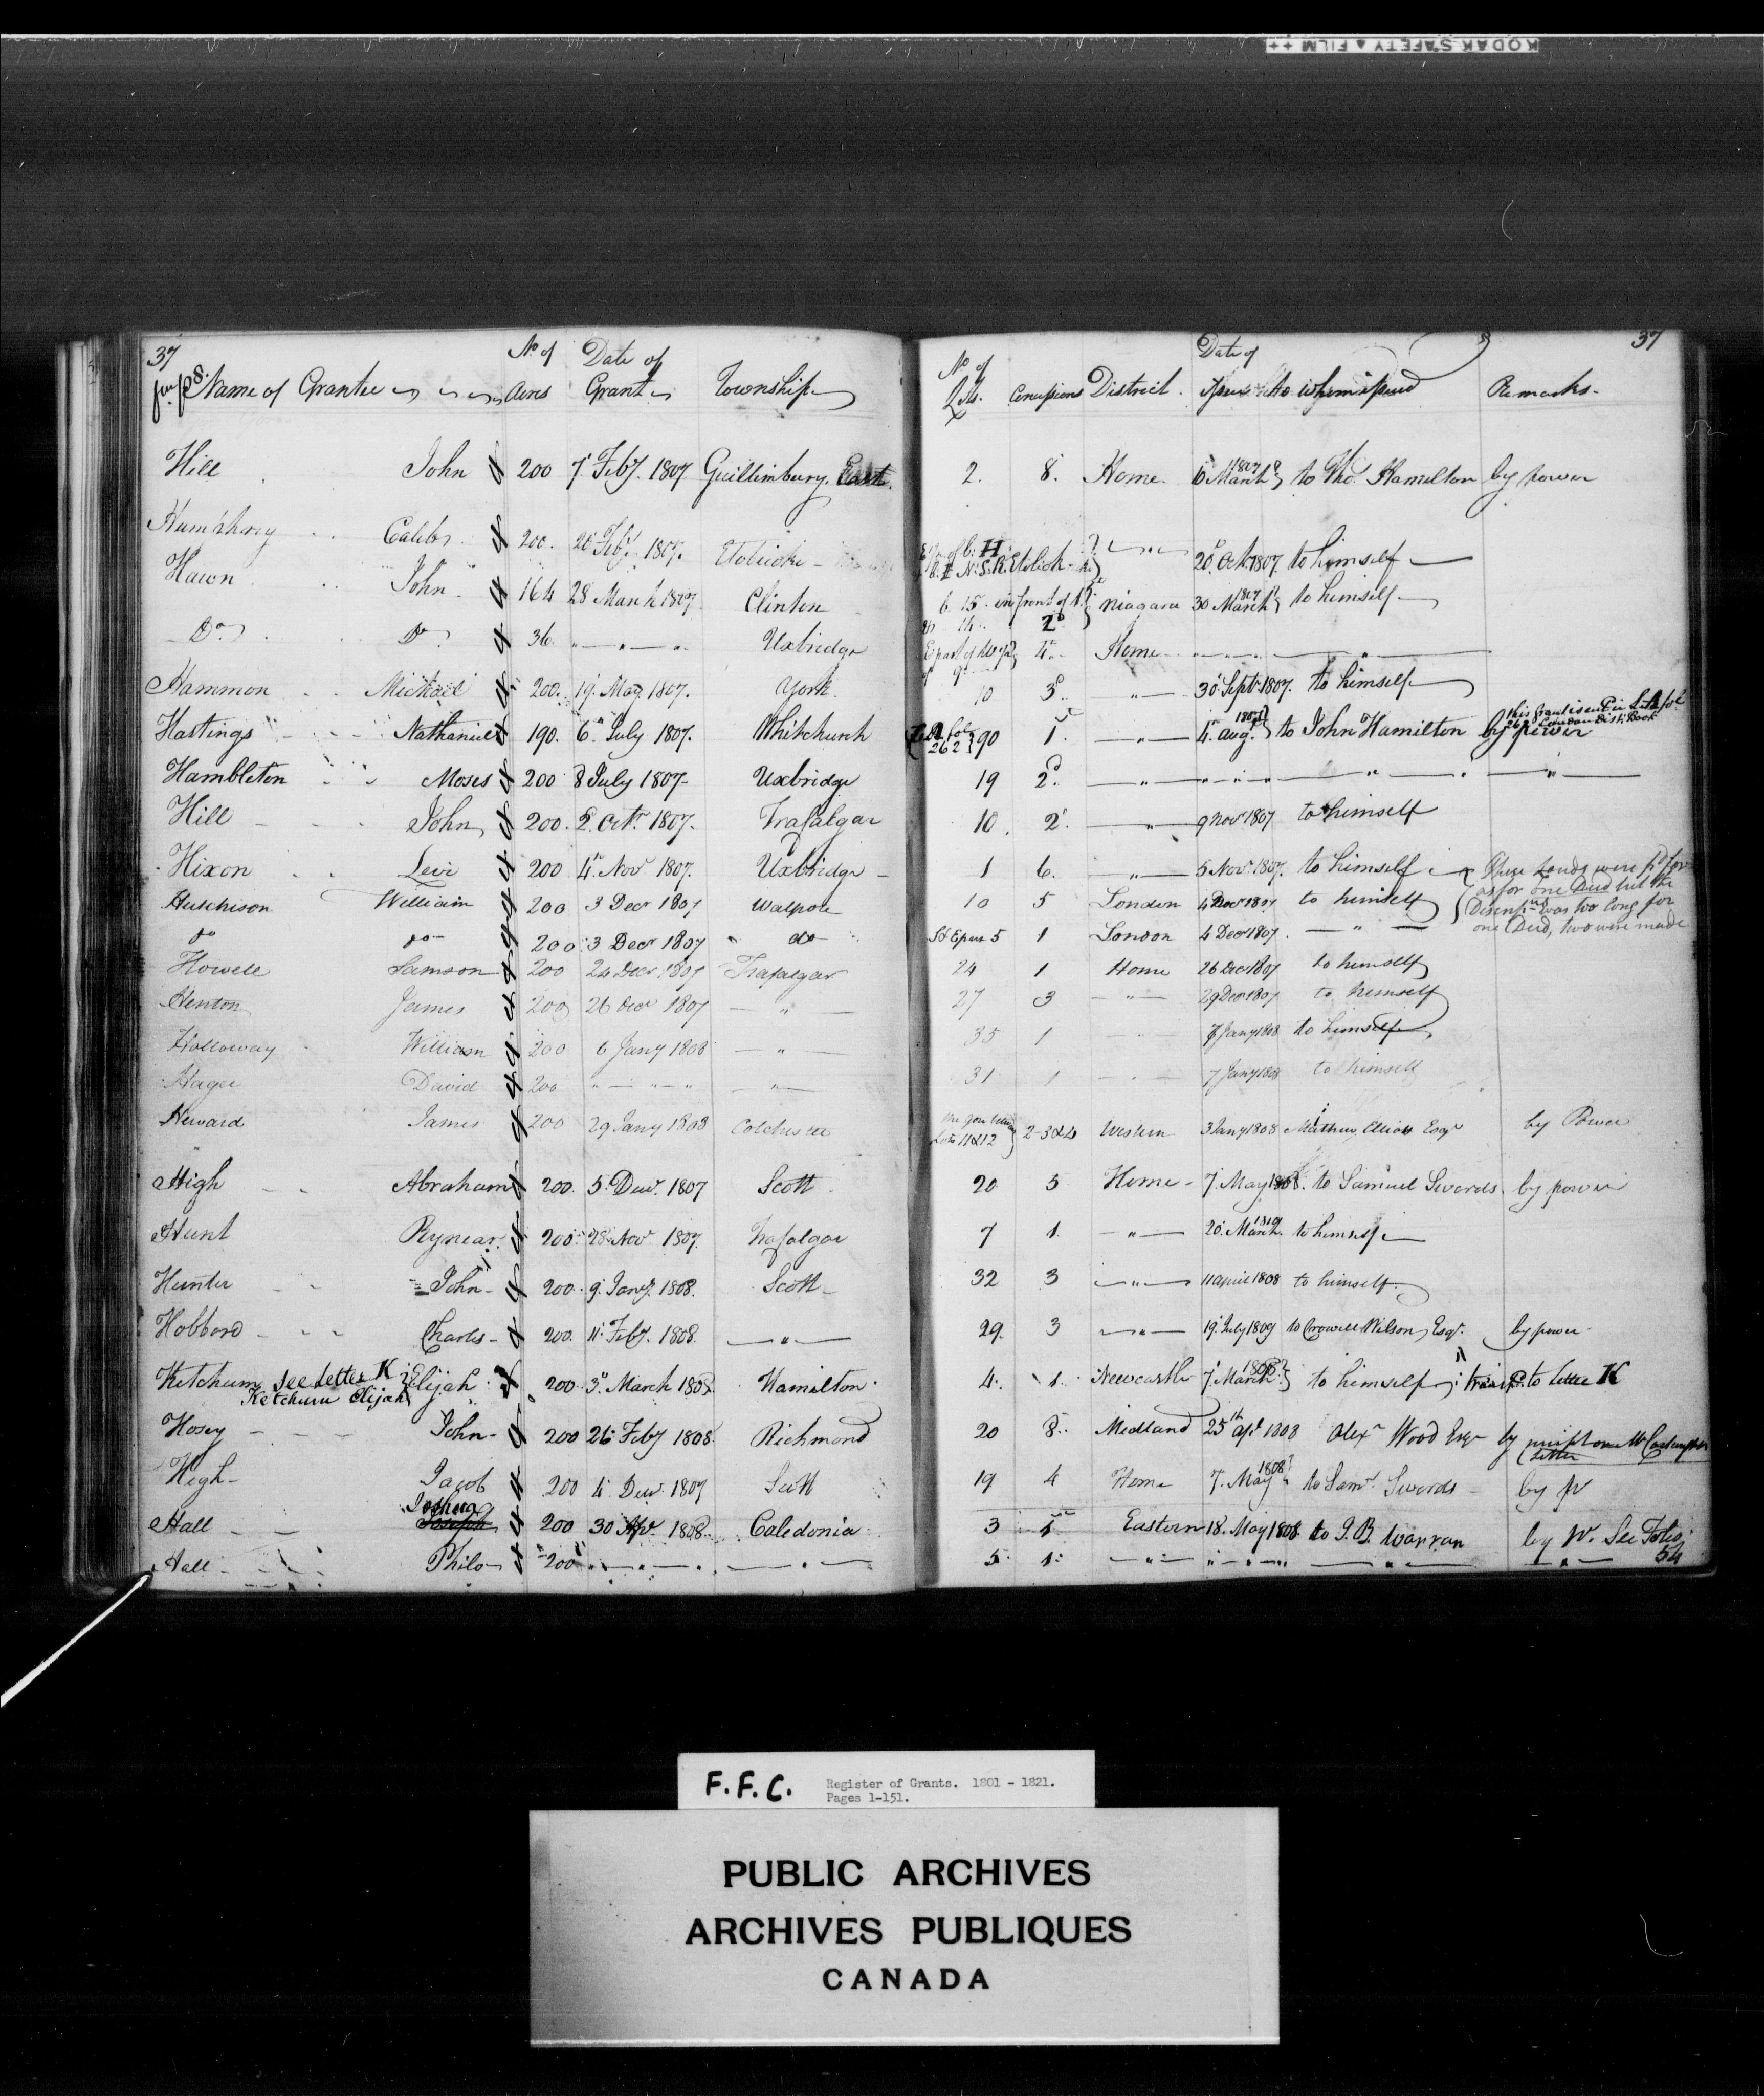 KODAK SAFETY ▲ FILM ++
37 37
Name of Grantee No of Acres Date of Grant Township No of Lots. Concessions District. Date of Issue to whom issued Remarks.
Hill John 200 7 Feby. 1807 Guillimbury East. 2. 8. Home. 6 March 1807 to Tho. Hamilton by power
Humphrey Caleb 200. 20 Feby. 1807. Etobicoke 20 Oct. 1807 to himself
Hawn John 164 28 March 1807 Clinton 6. 15. in front of 1 Niagara 30 March 1807 to himself
& 14. 2d
Do Do 36 " " " Uxbridge E part of 4. Home " " "
Hammon Michael 200. 19 May 1807. York 10 3d " 30 Sept. 1807. to himself
Hastings Nathaniel 190. 6th July 1807. Whitchurch fol. 262 90 1. " 4. Aug. 1807 to John Hamilton by power
262 London Dist. Book
Hambleton Moses 200 8 July 1807 Uxbridge 19 2d. " " " " " "
Hill John 200. 2. Octr. 1807. Trafalgar 10. 2d. " 9 Novr 1807 to himself
Hixon Levi 200 4th Novr 1807. Uxbridge 1 6. " 5 Novr. 1807. to himself
Hutchison William 200 3 Decr 1807 Walpole 10 5 London 4 Decr 1807 to himself
These Lands were pd for
as for one Deed but the
was too long for
one Deed, two were made
do do 200 3 Decr 1807 " do " 5 1 London 4 Decr 1807. "
Howell Samson 200 24 Decr. 1807 Trafalgar 24 1 Home 26 Decr 1807 to himself
Henton James 200 26 Decr 1807 " 27 3 " 29 Decr 1807 to himself
Holloway William 200 6 Jany 1808 " 35 1 " 8 Jany 1808 to himself
Hager David 200 " " " " 31 1 " 7 Jany 1808 to himself
Heward James 200 29 Jany 1808 Colchester Lots 11 & 12 2-3 & 4 Western 3 Jany 1808 Mathew Elliott Esqr by Power
High Abraham 200. 5. Decr. 1807 Scott 20 5 Home 7. May 1808. to Samuel Swords. by power
Hunt Rynear. 200. 28. Novr 1807. Trafalgar 7 1. " 20. March. 1810 to himself
Hunter John 200. 9. Jany. 1808. Scott 32 3 " 11 April 1808 to himself.
Hobbord Charls 200. 11. Feby. 1808. " 29. 3 " 19. July 1809 to Crowell Wilson, Esqr. by power
Ketchum see Letter K Elijah 200. 3d. March 1808. Hamilton 4. 1. Newcastle 7. March 1808 to himself to Letter K
Ketchum Elijah
Hosey John 200 26 Feby 1808 Richmond 20 8. Midland 25th Apl 1808 Alexr Wood Esqr by
Letter
High Jacob 200 4. Decr. 1807 Scott 19 4 Home 7. May 1808 to Saml. Swords by pr
Hall Joshua 200 30 Apr. 1808. Caledonia 3 1 Eastern 18. May 1808 to J. B. Warran by Pr. See Folio
54
Hall Philo 200 " " " " 5. 1. " " " " " "
F.F.C. Register of Grants. 1801 - 1821.
Pages 1-151.
PUBLIC ARCHIVES
ARCHIVES PUBLIQUES
CANADA